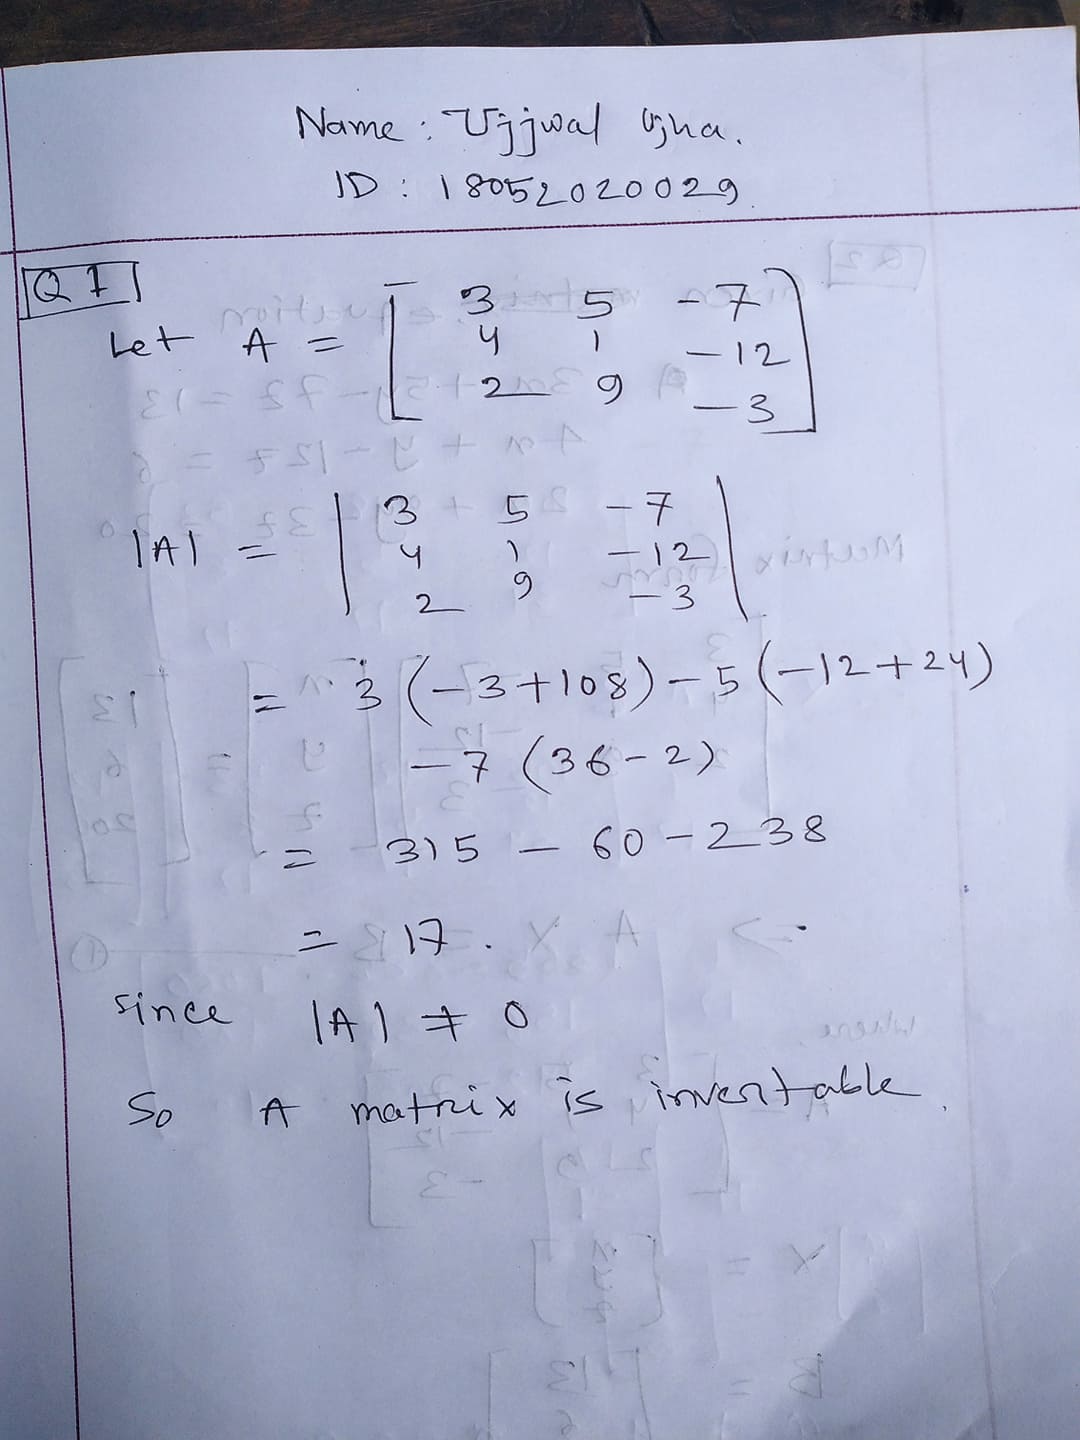 Name : Ujjwal Ojha.
ID : 18052020029.
Q 1
Let A = [ 3 5 -7
4 1 -12
2 9 -3 ]
|A| = | 3 5 -7
4 1 -12
2 9 -3 |
= 3 (-3+108) - 5 (-12+24)
-7 (36-2)
= 315 - 60 - 238
= 17.
since |A| ≠ 0
So A matrix is invertable.